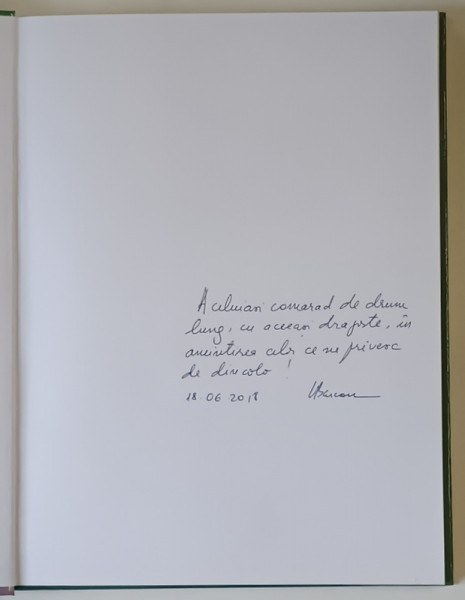 Aceluiași comarad de drum
lung, cu aceeași dragoste, în
amintirea celor ce ne privesc
de dincolo!
18.06 2018